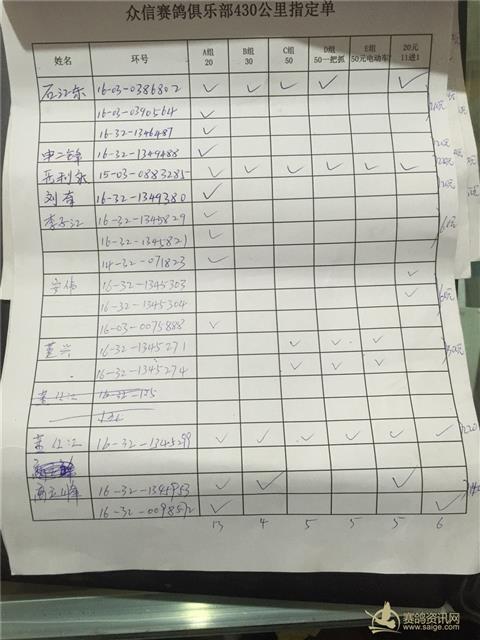 众信赛鸽俱乐部430公里指定单
姓名 环号 A组 20 B组 30 C组 50 D组 50一把抓 E组 50元电动车 20元 11进1
石江东 16-03-0386802 ✓ ✓ ✓ ✓ ✓
16-03-0390564 ✓
16-32-1346487 ✓
16-32-1349488 ✓
15-03-0883285 ✓ ✓ ✓ ✓ ✓ ✓
刘 16-32-1349380 ✓
李子江 16-32-1345829 ✓
16-32-1345821 ✓
14-32-071823 ✓
安伟 16-32-1345303 ✓
16-32-1345304 ✓
16-03-0075888 ✓
董兴 16-32-1345271 ✓ ✓ ✓
16-32-1345274 ✓ ✓ ✓
16-32-1345299 ✓ ✓ ✓ ✓ ✓ ✓
16-32-1345953 ✓ ✓ ✓
16-32-0098592 ✓
13 4 5 5 5 6
赛鸽资讯网
www.saige.com